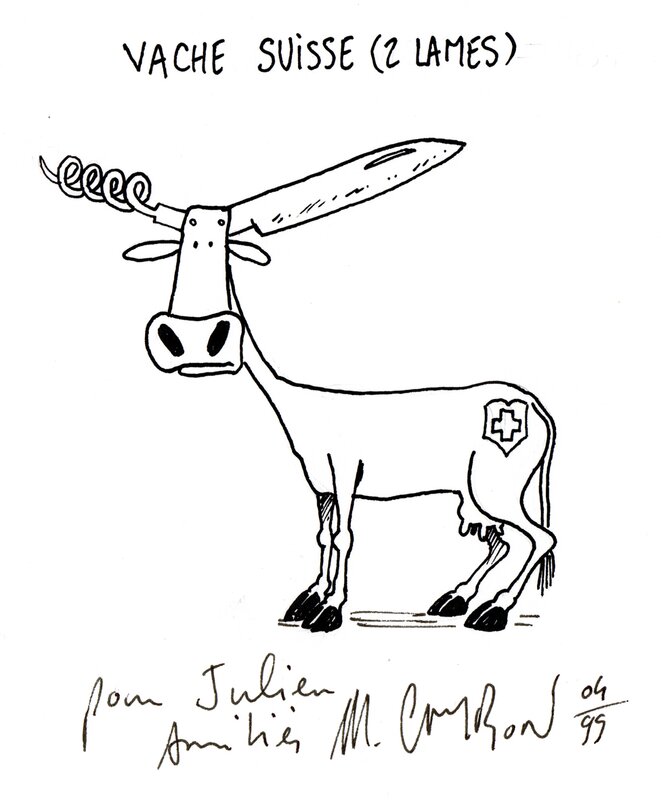 VACHE SUiSSE (2 LAMES)
pour Julien
Amitiés M. 04/99